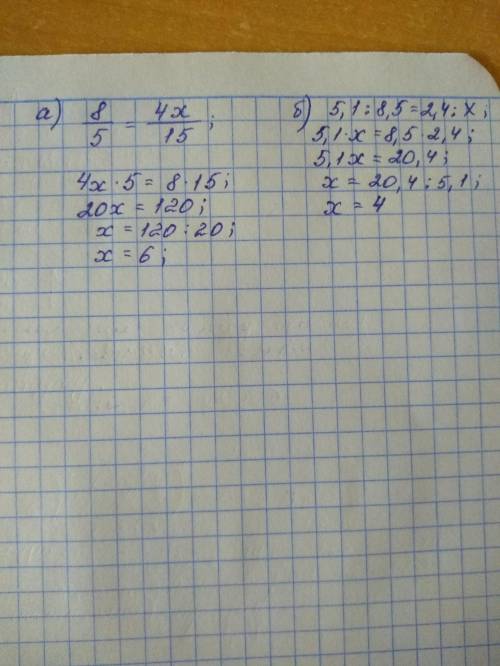 а) 8/5 = 4x/15;
4x · 5 = 8 · 15;
20x = 120;
x = 120 : 20;
x = 6;
б) 5,1 : 8,5 = 2,4 : x;
5,1 · x = 8,5 · 2,4;
5,1x = 20,4;
x = 20,4 : 5,1;
x = 4